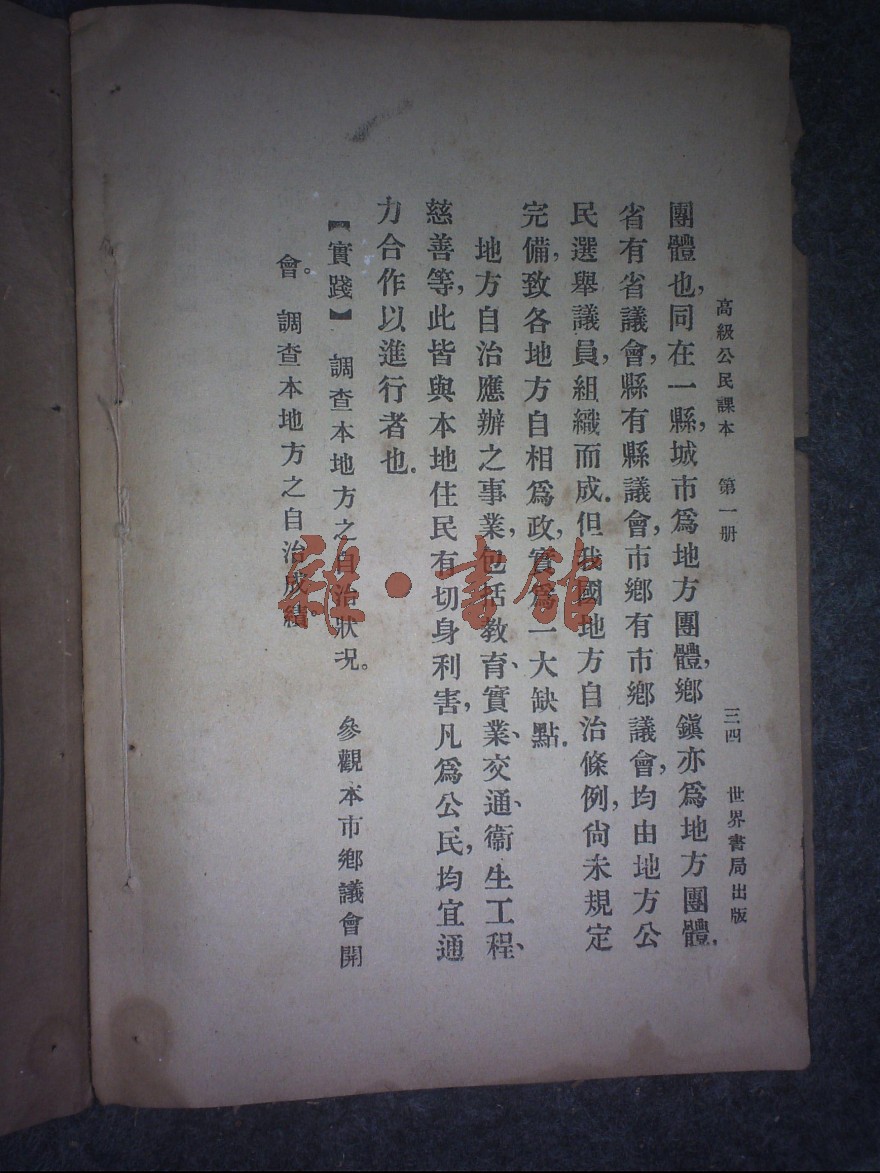 高級公民課本 第一册 三四 世界書局出版
團體也,同在一縣,城市爲地方團體,鄉鎭亦爲地方團體.
省有省議會,縣有縣議會,市鄉有市鄉議會,均由地方公
民選舉議員,組織而成.但我國地方自治條例,尙未規定
完備,致各地方自相爲政,實爲一大缺點.
地方自治應辦之事業,包括敎育、實業、交通、衞生、工程、
慈善等,此皆與本地住民有切身利害,凡爲公民,均宜通
力合作以進行者也.
【實踐】 調查本地方之自治狀況。 參觀本市鄉議會開
會。 調查本地方之自治成績。
雜·書館